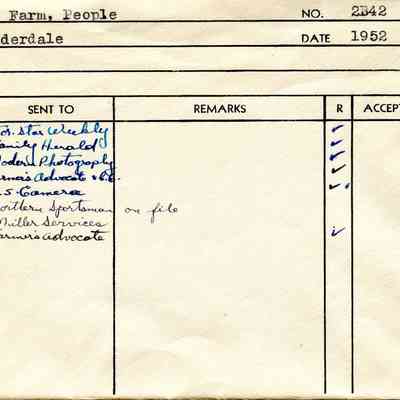 Farm, People NO. 2B42
derdale DATE 1952
SENT TO REMARKS R ACCEPT
or. Star Weekly
amily Herald
odern Photography
armer's Advocate
.S. Camera
orthern Sportsman on file
Miller Services
armer's Advocate